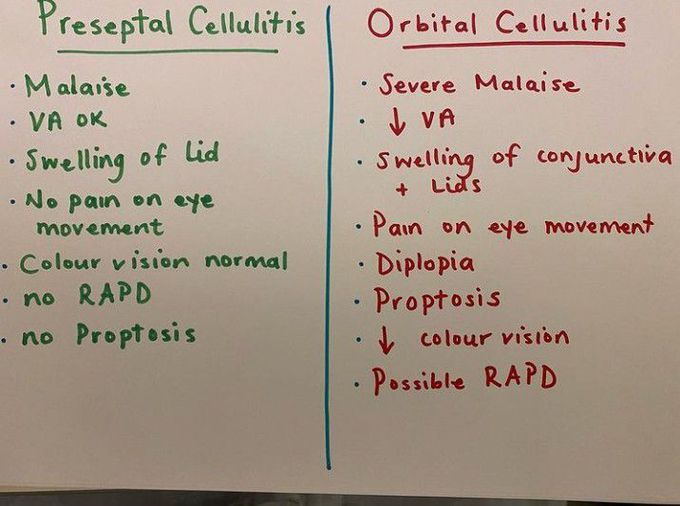 Preseptal Cellulitis
• Malaise
• VA OK
• Swelling of Lid
• No pain on eye
movement
• Colour vision normal
• no RAPD
• no Proptosis
Orbital Cellulitis
• Severe Malaise
• ↓ VA
• Swelling of conjunctiva
+ Lids
• Pain on eye movement
• Diplopia
• Proptosis
• ↓ colour vision
• Possible RAPD